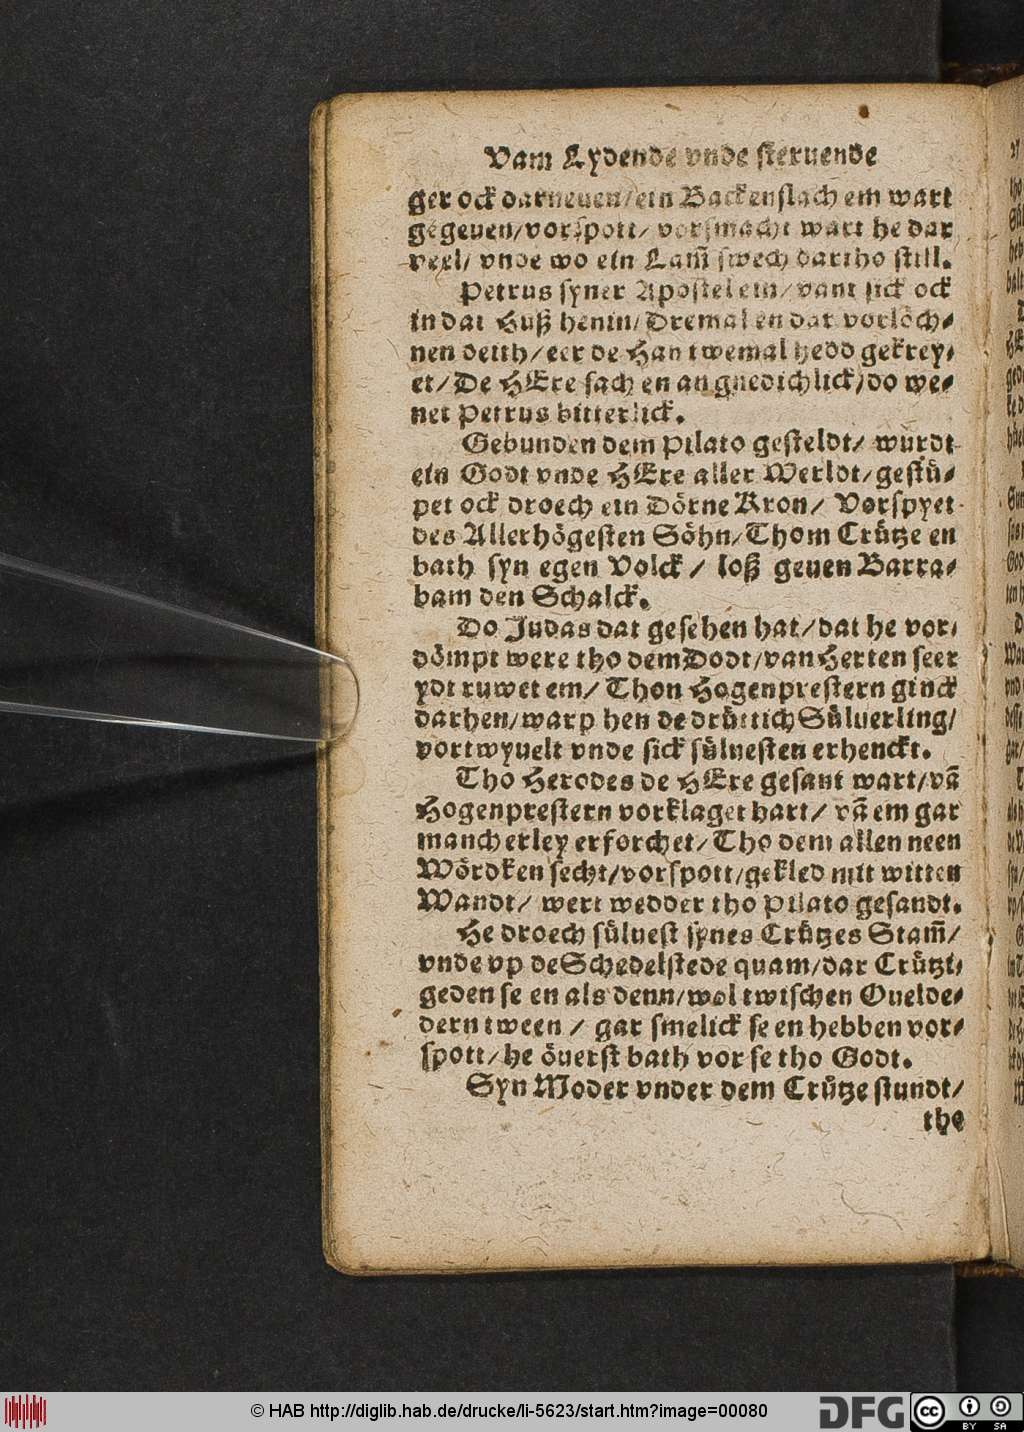 Vam Lydende vnde steruende
ger ock darneuen/ ein Backenslach em wart
gegeuen/ vorspott/ vorsmacht wart he dar
veel/ vnde wo ein Lam̃ swech dartho still.
Petrus syner Apostel ein/ vant sick ock
in dat Huß henin/ Dremal en dar vorlöch⸗
nen deith/ eer de Han twemal hedd gekrey⸗
et/ De HEre sach en an gnedichlick/ do we⸗
net Petrus bitterlick.
Gebunden dem Pilato gesteldt/ wurdt
ein Godt vnde HEre aller Werldt/ gestü⸗
pet ock droech ein Dörne Kron/ Vorspyet
des Allerhögesten Söhn/ Thom Crütze en
bath syn egen Volck/ loß geuen Barra⸗
bam den Schalck.
Do Judas dat gesehen hat/ dat he vor⸗
dömpt were tho dem Dodt/ van Herten seer
ydt ruwet em/ Thon Hogenprestern ginck
darhen/ warp hen de drüttich Süluerling/
vortwyuelt vnde sick süluesten erhenckt.
Tho Herodes de HEre gesant wart/ vã
Hogenprestern vorklaget hart/ vã em gar
mancherley erforchet/ Tho dem allen neen
Wördken secht/ vorspott/ gekled mit witten
Wandt/ wert wedder tho Pilato gesandt.
He droech süluest synes Crützes Stam̃/
vnde vp de Schedelstede quam/ dar Crützi⸗
geden se en als denn/ wol twischen Ouelde⸗
dern tween/ gar smelick se en hebben vor⸗
spott/ he öuerst bath vor se tho Godt.
Syn Moder vnder dem Crütze stundt/
the
© HAB http://diglib.hab.de/drucke/li-5623/start.htm?image=00080
DFG
cc BY SA